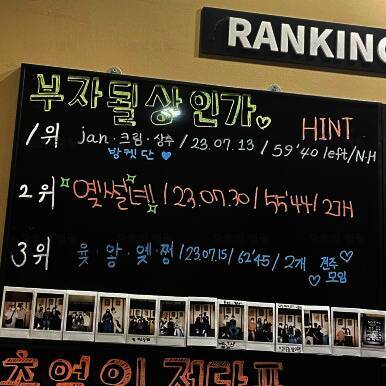 RANKING
부자될상인가♡
HINT
1위 jan·크림·상추 / 23.07.13 / 59'40 left / N.H
방켓단 ♥
2위 옞썰녜 / 23.07.30 / 55'44 / 2개
3위 윳·왕·옞·쩡 / 23.07.15 / 62'45 / 2개 전주
모임
추억의 전당표